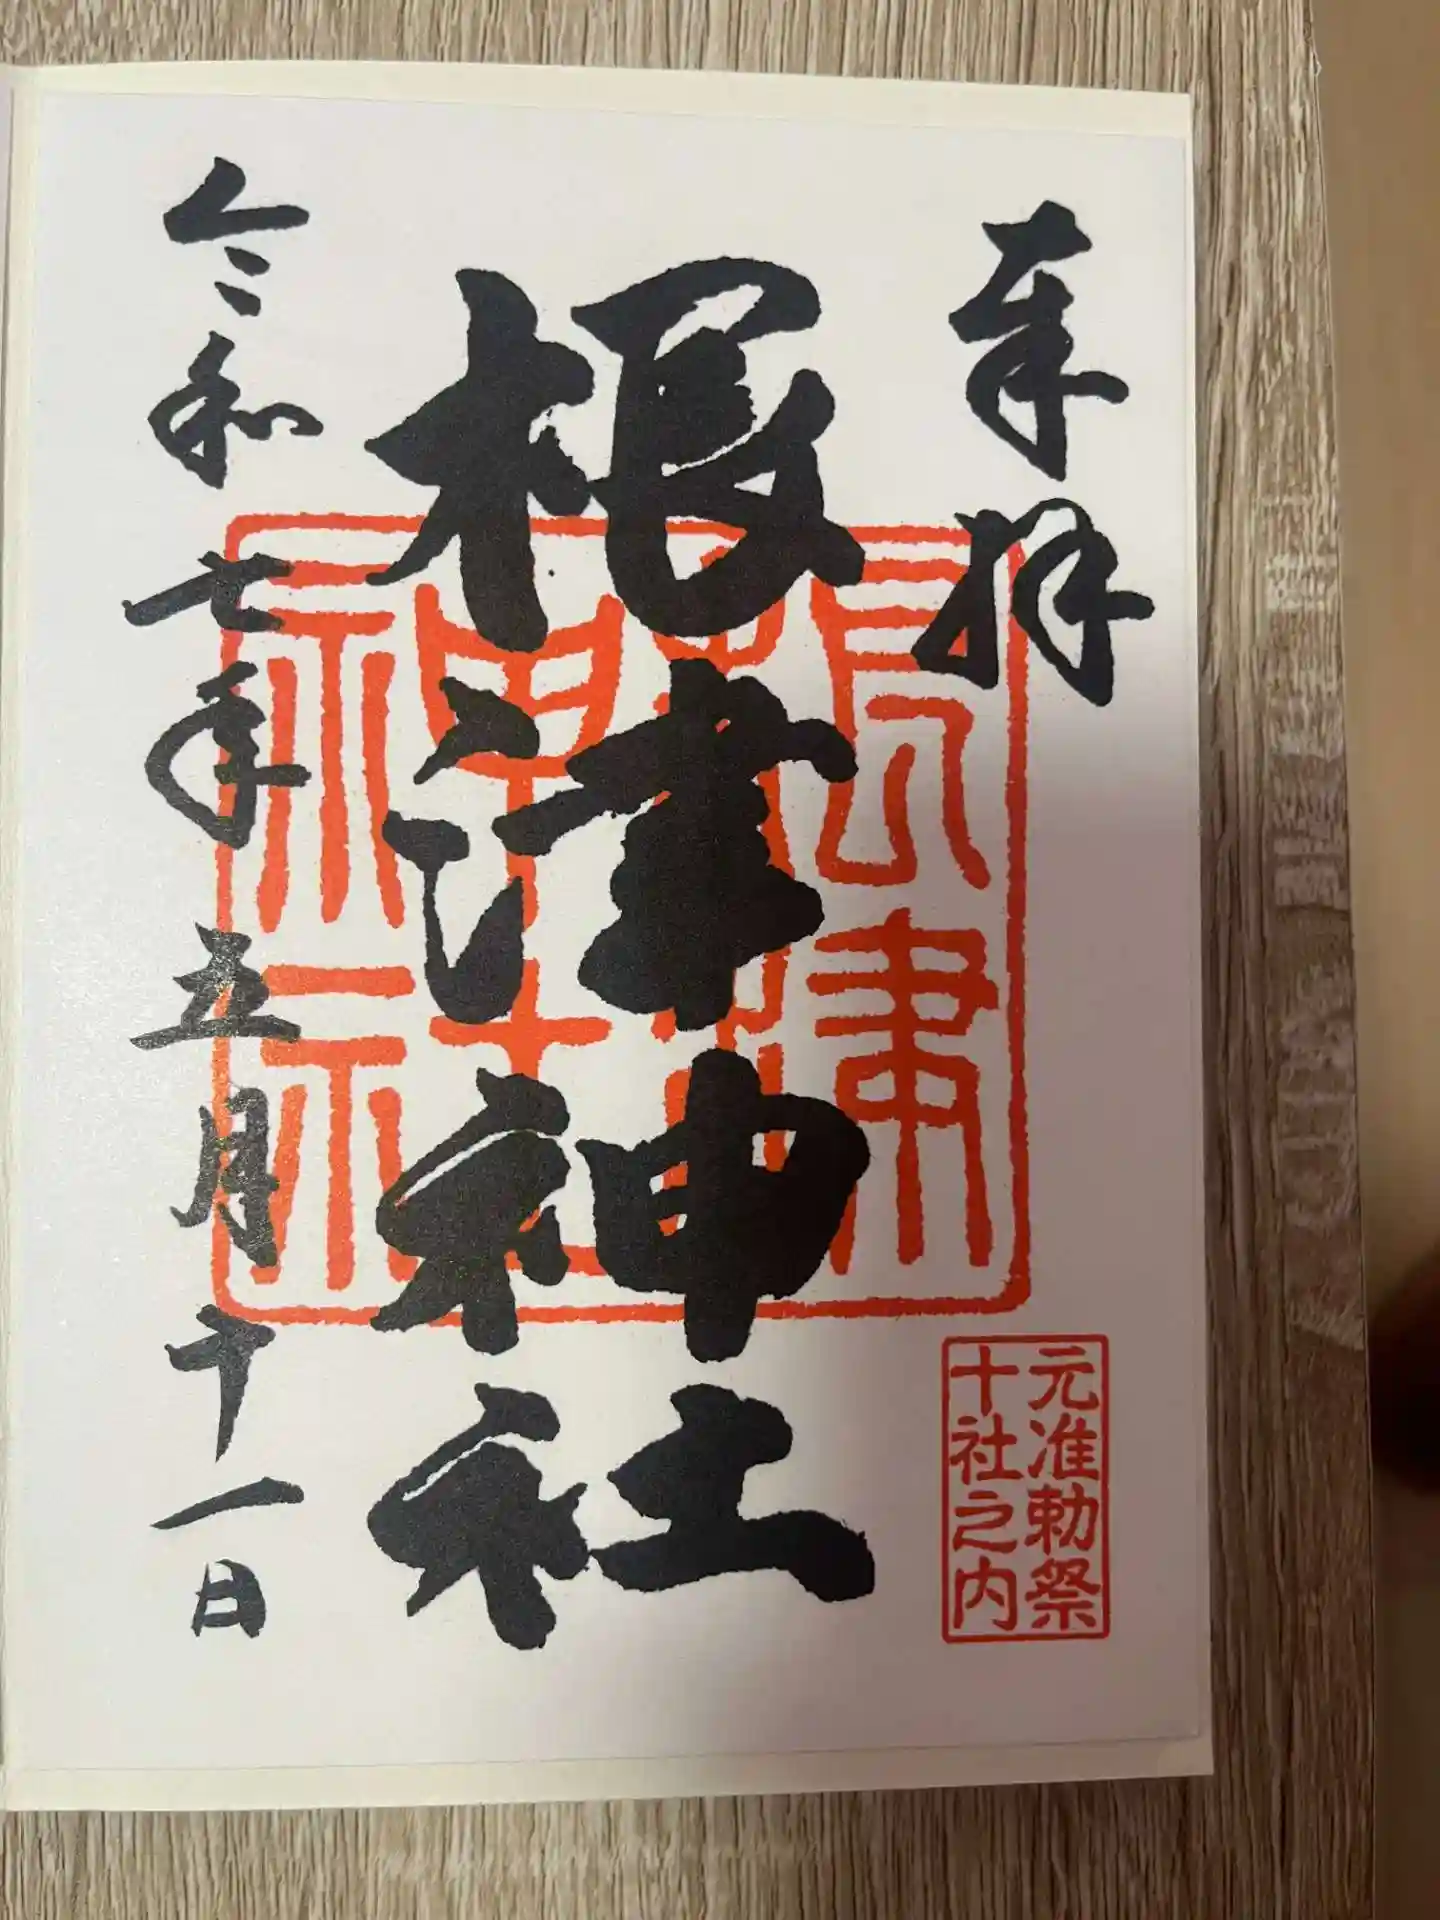 奉拝
元准勅祭
十社之内
根津神社
根津
神社
令和七年五月十一日